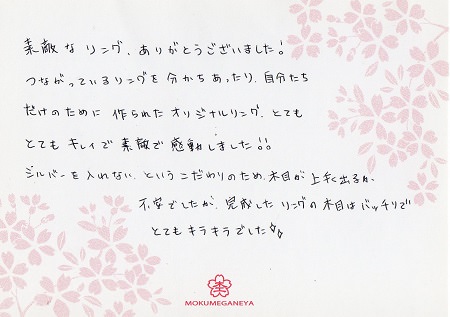 素敵なリング、ありがとうございました!
つながっているリングを分かちあったり、自分たち
だけのために作られたオリジナルリング、とても
とてもキレイで素敵で感動しました!!
シルバーを入れない、というこだわりのため、木目が上手く出るか、
不安でしたが、完成したリングの木目はバッチリで
とてもキラキラでした
MOKUMEGANEYA